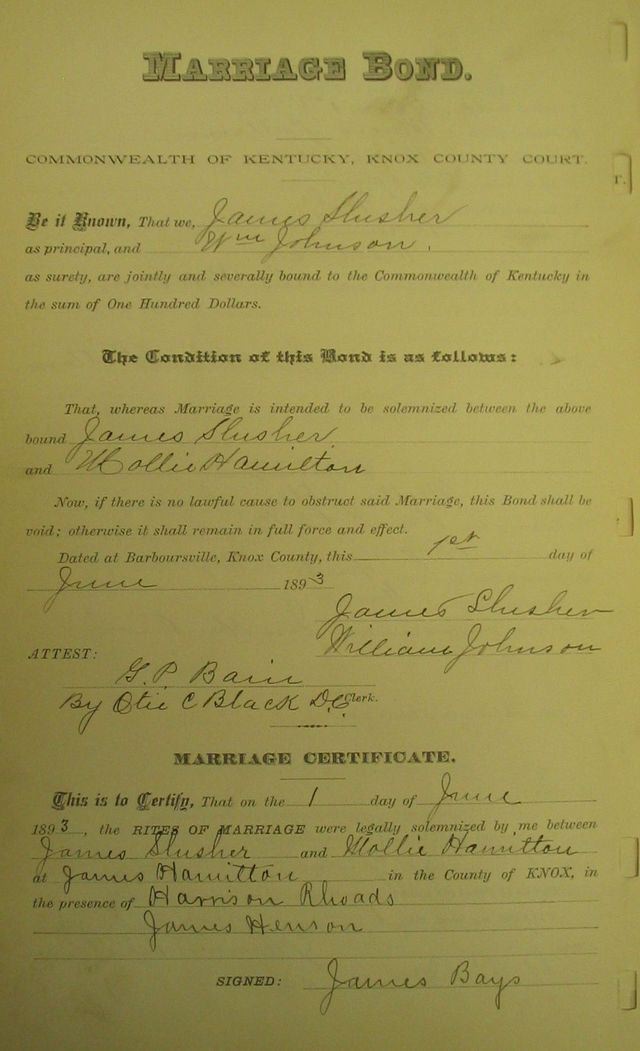 MARRIAGE BOND.
COMMONWEALTH OF KENTUCKY, KNOX COUNTY COURT.
r.
Be it Known, That we, James Slusher
as principal, and Wm Johnson.
as surety, are jointly and severally bound to the Commonwealth of Kentucky in
the sum of One Hundred Dollars.
The Condition of this Bond is as follows:
That, whereas Marriage is intended to be solemnized between the above
bound James Slusher
and Mollie Hamilton
Now, if there is no lawful cause to obstruct said Marriage, this Bond shall be
void; otherwise it shall remain in full force and effect.
Dated at Barboursville, Knox County, this 1st day of
June 1893
James Slusher
William Johnson
ATTEST:
G. P. Bain
By Otie C Black D.C. Clerk.
MARRIAGE CERTIFICATE.
This is to Certify, That on the 1 day of June
1893, the RITES OF MARRIAGE were legally solemnized by me between
James Slusher and Mollie Hamilton
at James Hamilton in the County of KNOX, in
the presence of Harrison Rhoads
James Henson
SIGNED: James Bays